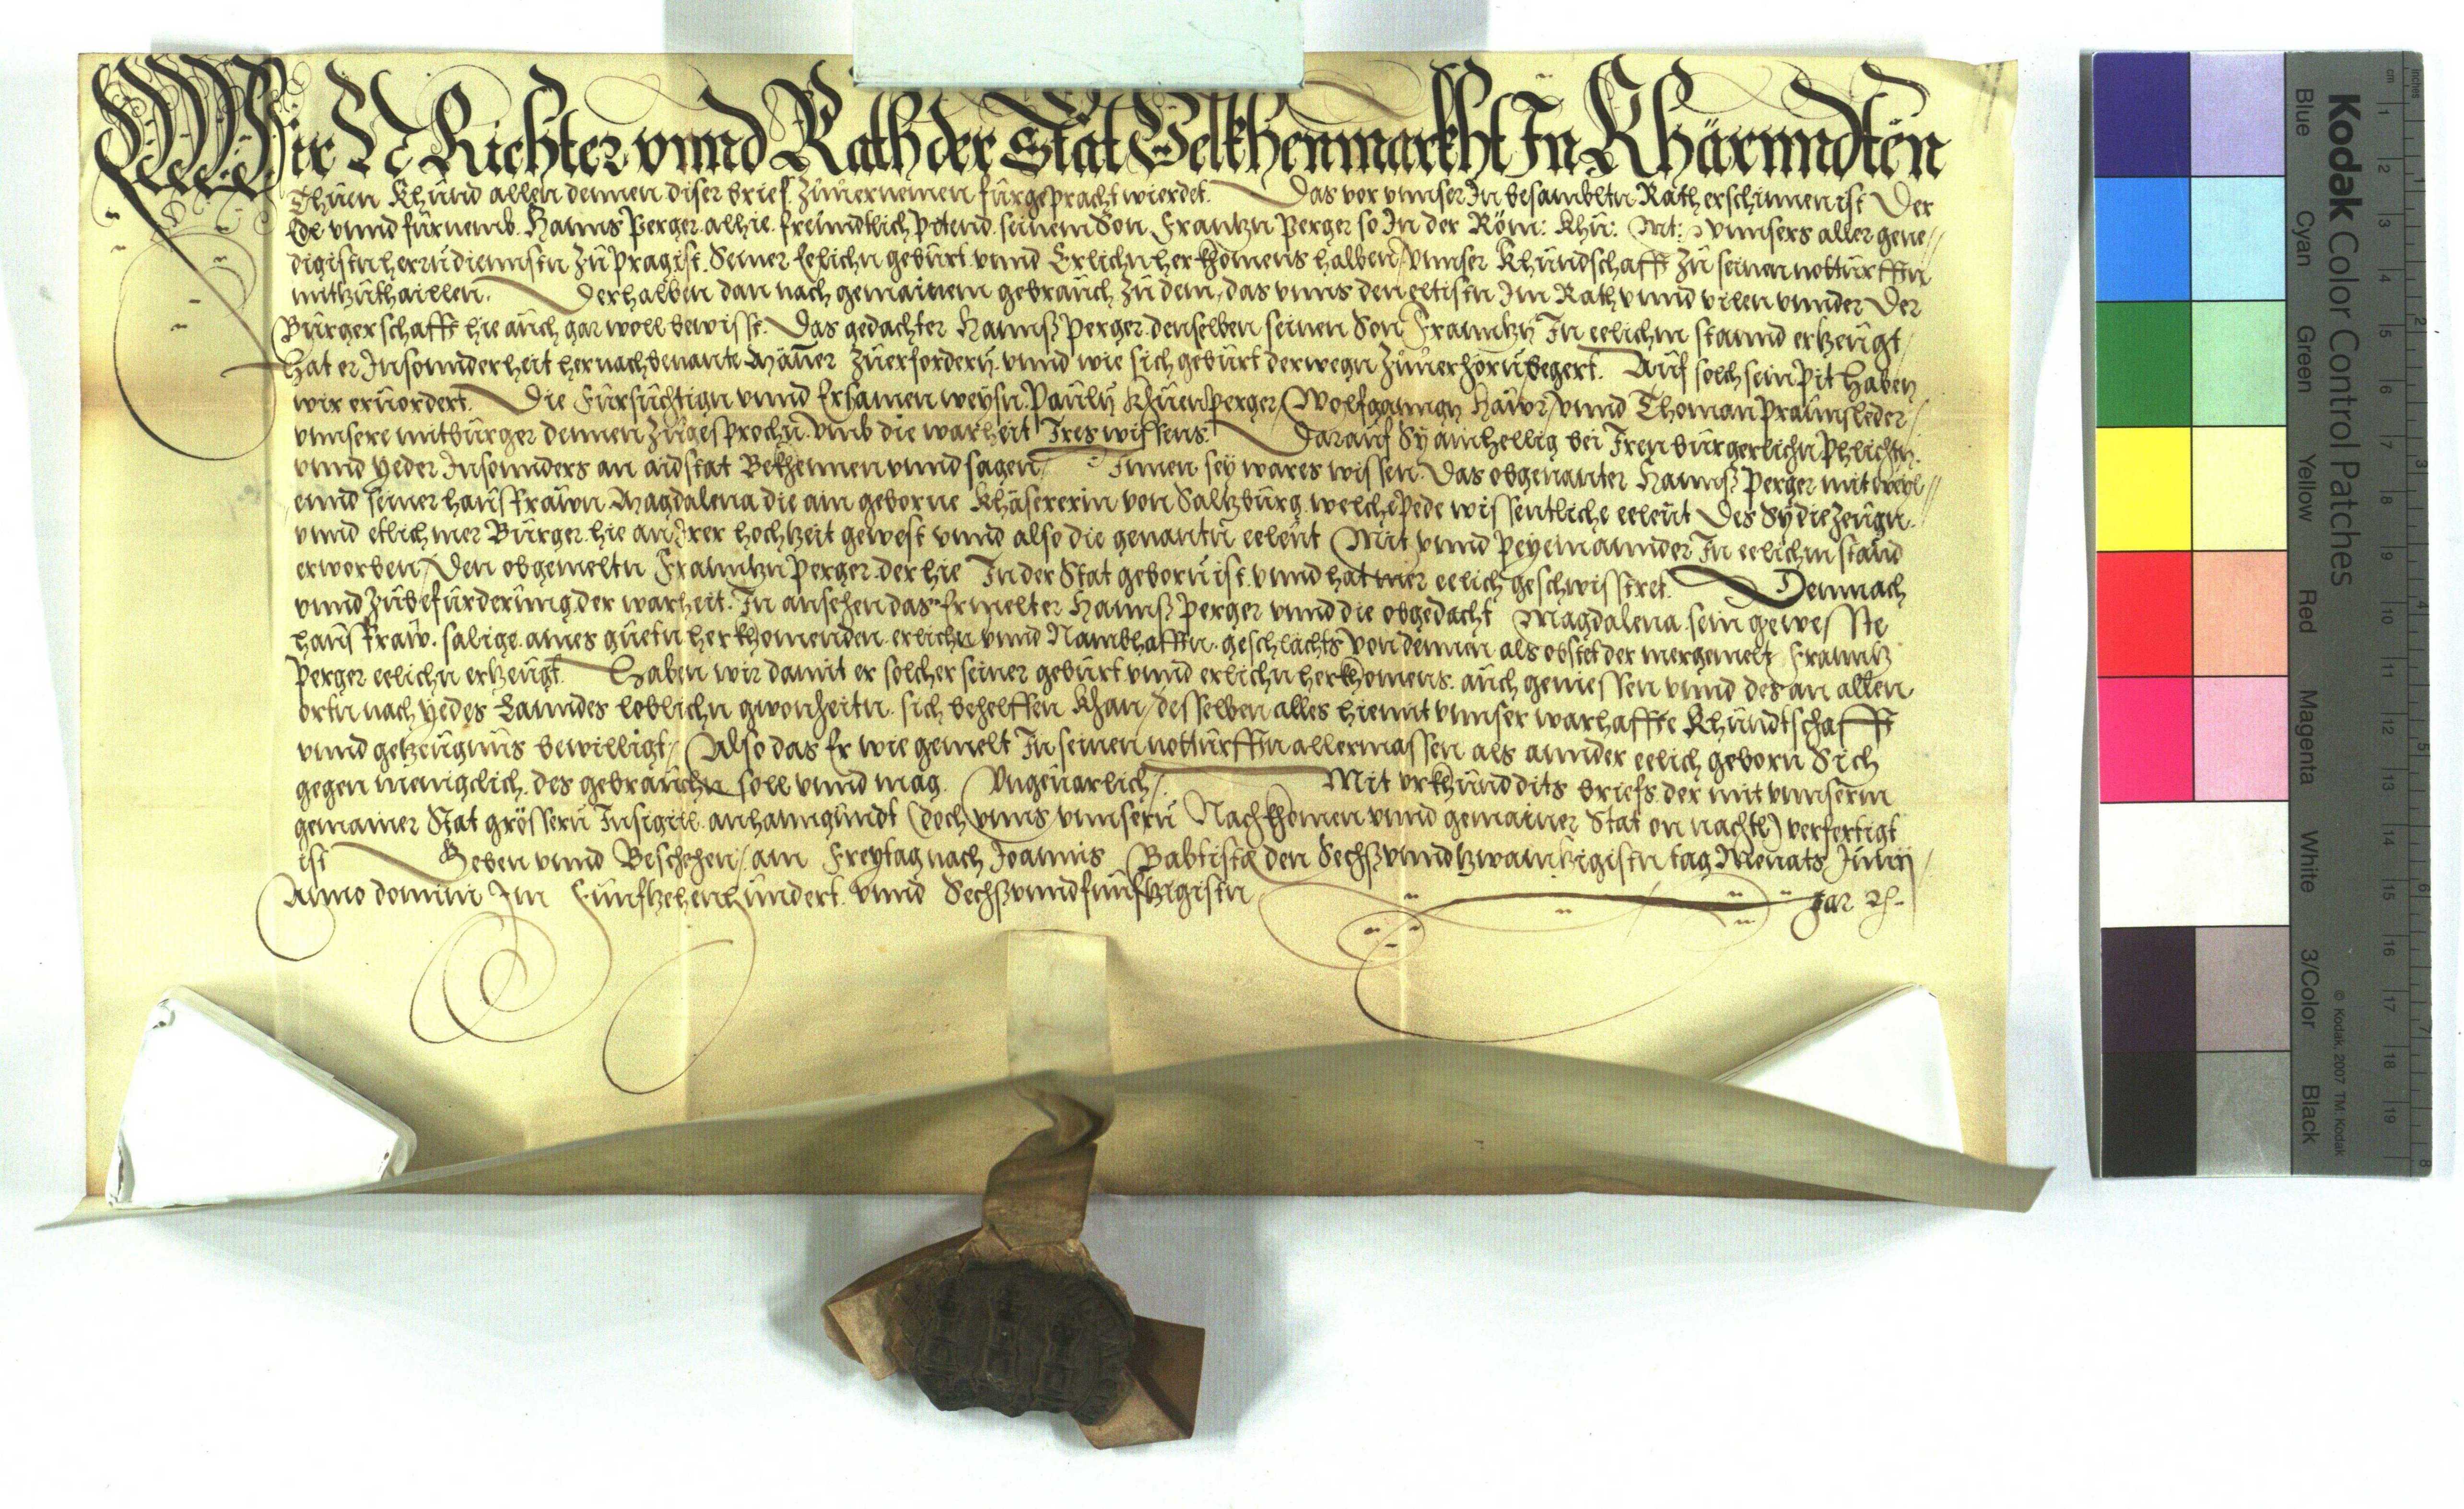 Wir N Richter vnnd Rath der Stat Velkhenmarkht In Khärnndten
Thuen Khund allen dennen diser brief Zuuernemen furgepracht wierdet. Das vor vnnser In besambltn Rath erschinnen ist Der
Edl vnnd furnemb. Hanns Perger alhie. freundtlich pitend. seinem Son. Frantzn Perger so In der Röm: Khu: Mt: vnnsers aller gene//
digistn herrn diennstn Zu Prag ist. Seiner Eelichn geburt vnnd Erlichn herkhomens halben/ vnnser Khundschafft Zu seinen notturfftn
mitzuthaillen. Derhalben dan nach gemainem gebrauch Zu dem, das vnns den eltistn Im Rath vnnd vilen vnnder Der
Burgerschafft hie auch gar woll bewisst. Das gedachter Hannß Perger denselben seinen Son Franntzn In eelichm stannd erzeugt/
Hat er Insonnderheit hernachbenante Mäner Zuerfordern. vnnd wie sich geburt derwegn Zuuerhörn begert. Auf solch sein Pit Haben
wir eruordert. Die Fursichtign vnnd Ersamen weysn. Pauln Khuenperger/ Wolfganngn Hawr/ vnnd Thoman Praunsleder/
vnnsere mitburger dennen Zugesprochn. vmb die warheit Ires wissens. Darauf Sy ainhellig bei Iren burgerlichn Phlichtn.
vnnd yeder Insonnders an aidstat Bekhennen vnnd sagen/ Innen sey wares wissen. Das obgenanter Hannß Perger mit weyl//
ennd seiner hausfrawn. Magdalena die ain geborne Khäsererin von Saltzburg. welche Pede wissentliche eeleut Des Sy die Zeugn.
vnnd etlich mer Burger. hie an Irer hochzeit gewest vnnd also die genantn eeleut Mit vnnd Peyeinannder In eelichm stand
erworben/ Den obgemeltn Franntzn Perger. der hie In der Stat geborn ist. vnnd hat mer eelich geschwisstret. Demnach
vnnd Zubefurderung der warheit. In ansehen das Ermelter Hannß Perger vnnd die obgedacht Magdalena sein gewesste
hausfraw. salige. aines guetn herkhomenden. erlichn vnnd Nambhafftn. geschlächts von dennen als obstet der mergemelt Franntz
Perger eelichn erzeugt. Haben wir damit er solcher seiner geburt vnnd erlichn herkhomens. auch geniessen vnnd des an allen
ortn nach yedes Lanndes loblichn gwonheitn. sich behelffen Khan/ desselben alles hiemit vnnser warhaffte Khundtschafft
vnnd getzeugnus bewilligt/ Also das Er wie gemelt In seinen notturfftn allermassen als annder eelich geborn Sich
gegen menigclich. des gebrauchn soll vnnd mag. Ungeuarlich/. Mit vrkhund dits briefs. der mit vnnserm
gemainer Stat grössern Insigill anhanngundt (doch vnns/ vnnsern Nachkhomen vnnd gemainer Stat on nachtl) verfertigt
ist Geben vnnd Beschehen/ am Freytag nach Joannis Babtista den Sechßvnndtzwantzigistn tag Monats Junij/
Anno domini Im Funfzehenhundert. vnnd Sechßvnndfunfftzigistn Jar
Kodak Color Control Patches
Blue Cyan Green Yellow Red Magenta White 3/Color Black
© Kodak, 2007 TM: Kodak
inches
cm
1 2 3 4 5 6 7 8 9 10 11 12 13 14 15 16 17 18 19
1 2 3 4 5 6 7 8